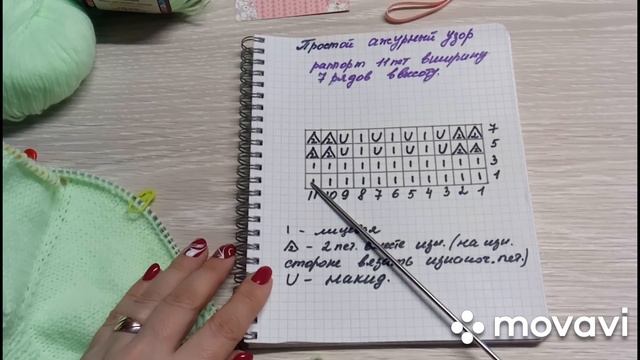 Простой ажурный узор
раппорт 11 пет в ширину
7 рядов в высоту.
Δ Δ U I U I U I U Δ Δ 7
Δ Δ U I U I U I U Δ Δ 5
I I I I I I I I I I I 3
I I I I I I I I I I I 1
11 10 9 8 7 6 5 4 3 2 1
I - лицевая
Δ - 2 пет. вместе изн. (на изн.
стороне вязать изнаноч. пет.)
U - накид.
movavi